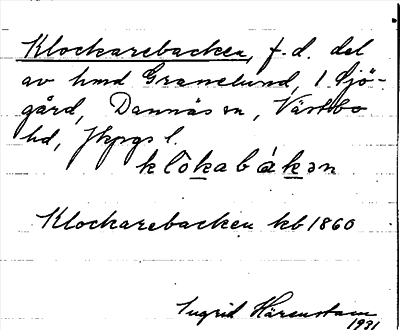 Klockarebacken, f. d. del
av hmd Granelund, 1 Sjö-
gård, Dannäs sn, Västbo
hd, Jkpgs l.
klòkabákən
Klockarebacken kb 1860
Ingrid Härenstam
1931